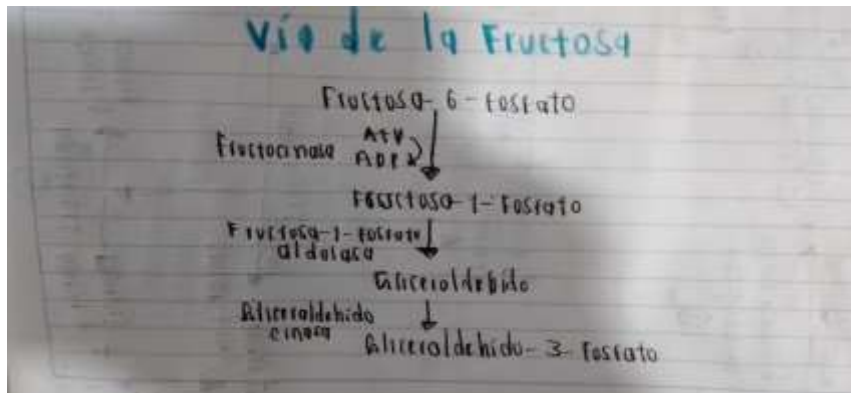 Vía de la Fructosa
Fructosa-6-fosfato
Fructocinasa ATP
ADP
Fructosa-1-Fosfato
Fructosa-1-fosfato
aldolasa
Gliceraldehído
Gliceraldehido
cinasa
Gliceraldehido-3-fosfato